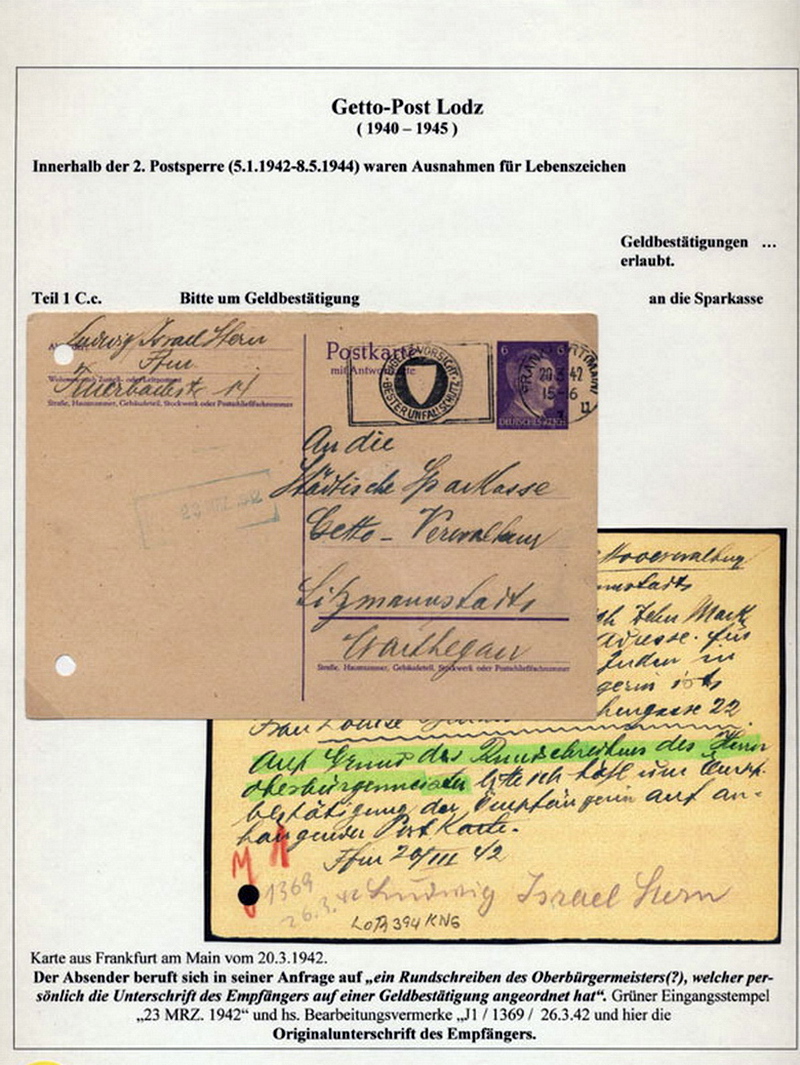 Getto-Post Lodz
( 1940 – 1945 )
Innerhalb der 2. Postsperre (5.1.1942-8.5.1944) waren Ausnahmen für Lebenszeichen
Geldbestätigungen ...
erlaubt.
Teil 1 C.c. Bitte um Geldbestätigung an die Sparkasse
Ludwig Israel Stern
Ffm.
Straße, Hausnummer, Gebäudeteil, Stockwerk oder Postschließfachnummer
Postkarte
mit Antwortkarte
VORSICHT
BESTER UNFALLSCHUTZ
6 6
DEUTSCHES REICH
20.3.42
15-16
An die
Städtische Sparkasse
Getto-Verwaltung
Litzmannstadt
Warthegau
Straße, Hausnummer, Gebäudeteil, Stockwerk oder Postschließfachnummer
23 MRZ. 1942
Zehn Mark
Adresse für
Juden in
22
Frau Louise
Auf Grund des Rundschreibens des Herrn
Oberbürgermeister bitte ich höfl um Empf.
bestätigung der Empfängerin auf an-
hängender Post Karte.
Ffm 20/III 42
1369
26.3.42 Ludwig Israel Stern
LOT 394 KNG
Karte aus Frankfurt am Main vom 20.3.1942.
Der Absender beruft sich in seiner Anfrage auf „ein Rundschreiben des Oberbürgermeisters(?), welcher per-
sönlich die Unterschrift des Empfängers auf einer Geldbestätigung angeordnet hat“. Grüner Eingangsstempel
„23 MRZ. 1942“ und hs. Bearbeitungsvermerke „J1 / 1369 / 26.3.42 und hier die
Originalunterschrift des Empfängers.